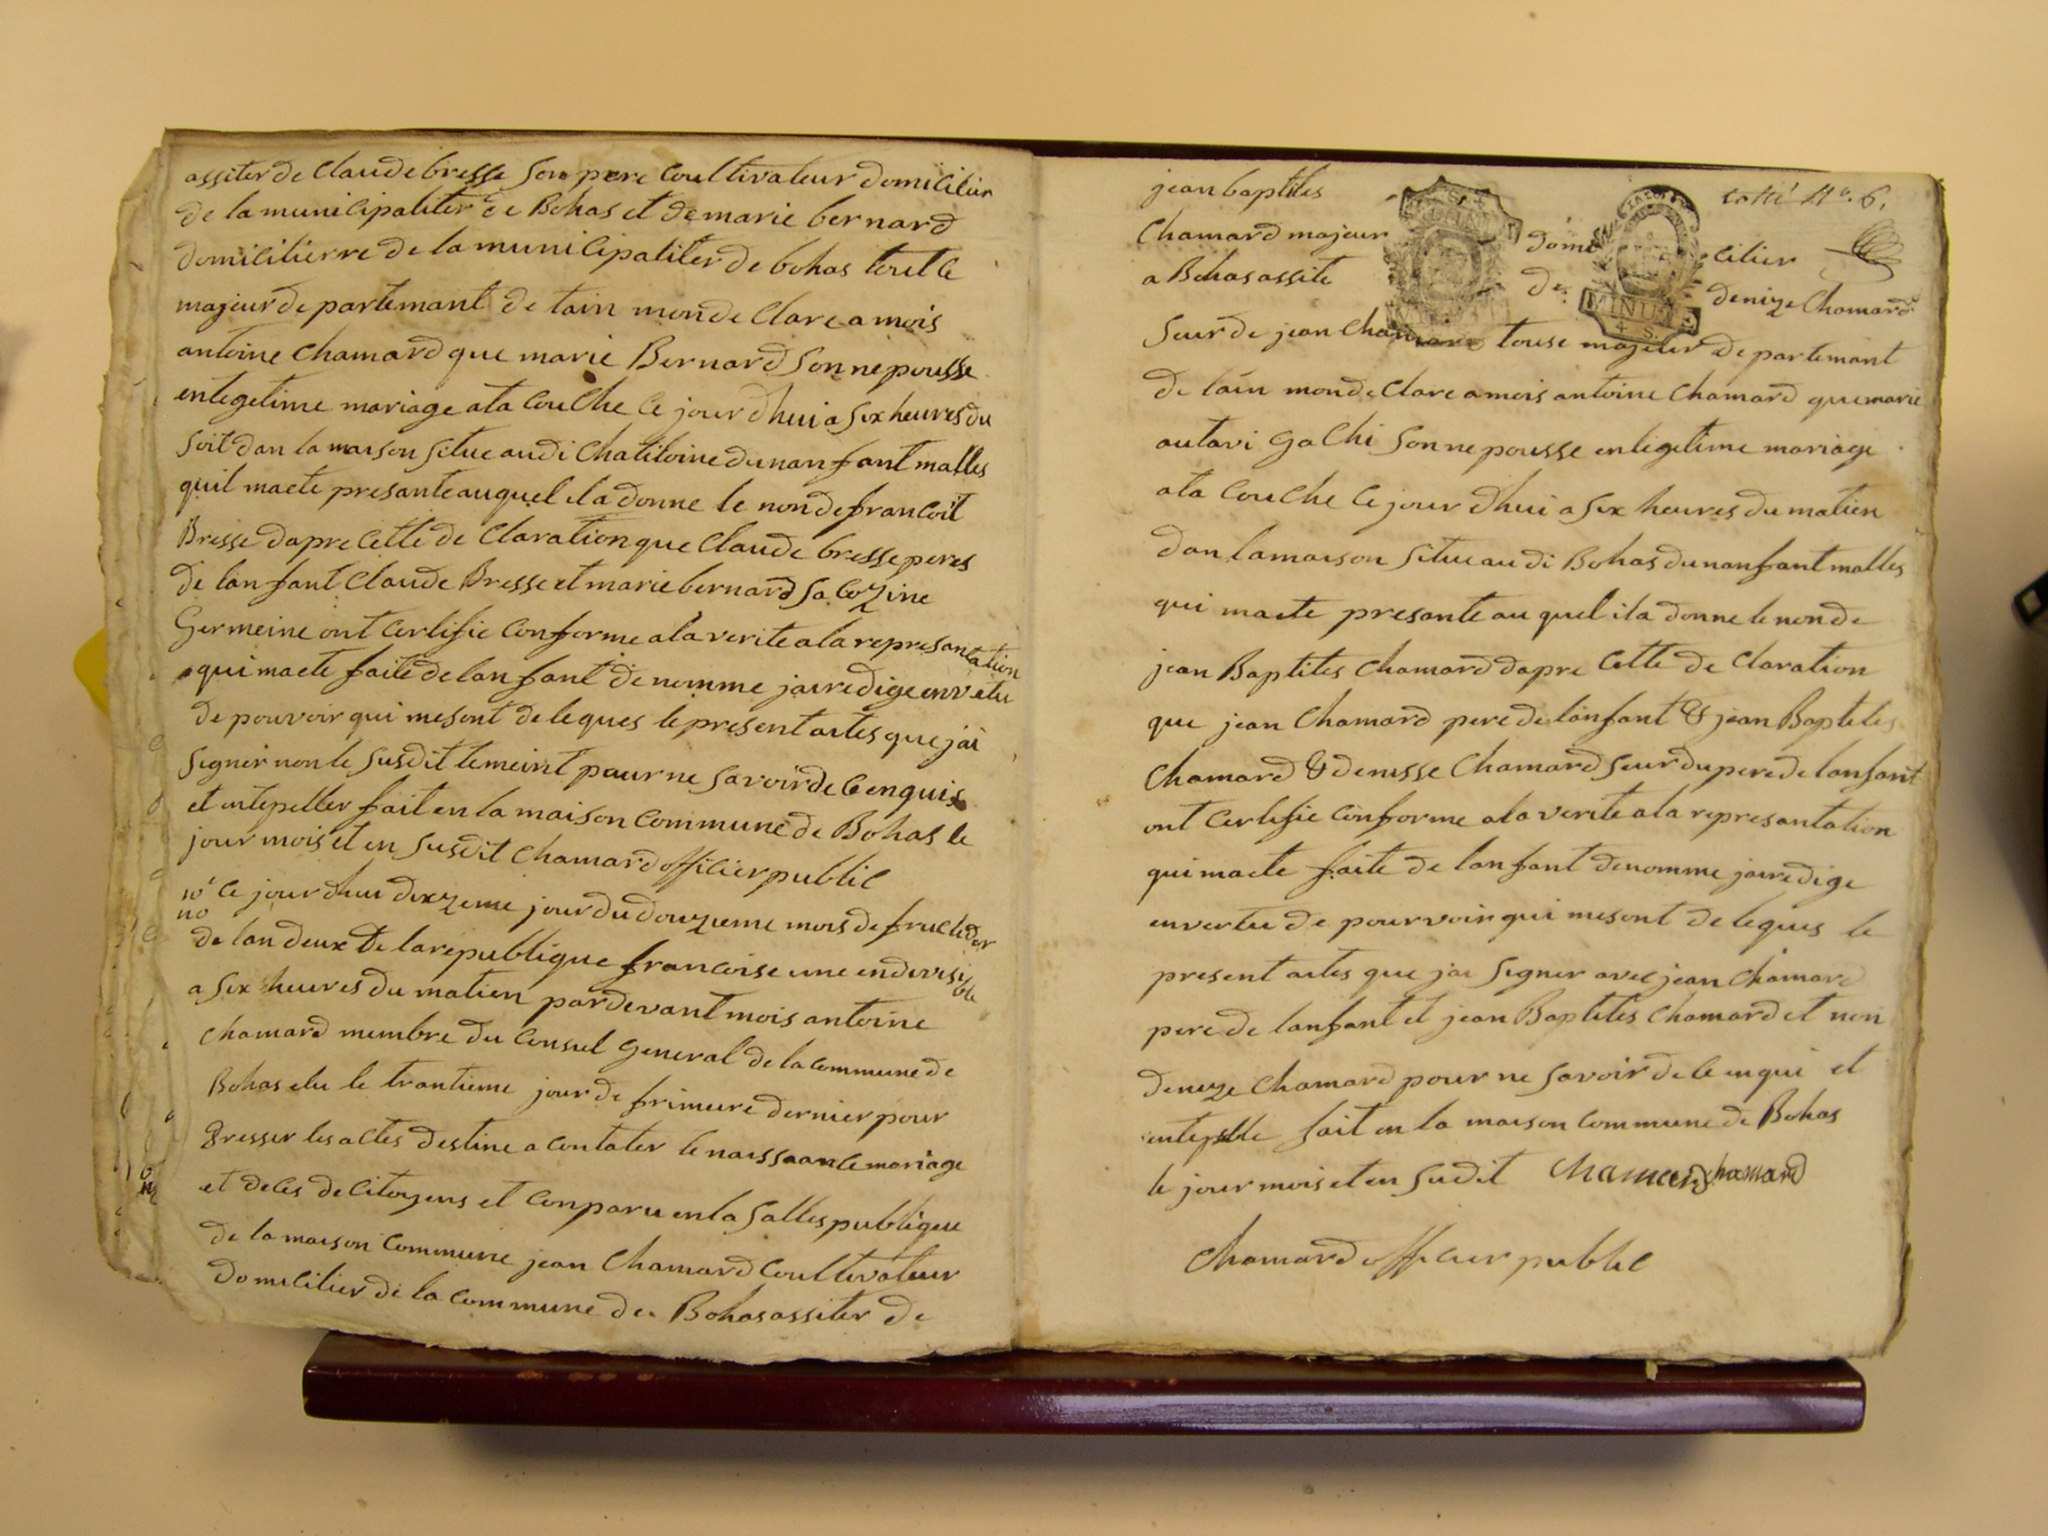 assiter de Claude bresse son pere Coultivateur domicilier
de la municipaliter de Bohas et de marie bernard
domicilierre de la municipaliter de bohas tout le
majeur departemant de tain monde Clare a mois
antoine Chamard que marie Bernard Son nepousse
enlegetime mariage ata Couche Ce jour dhui a Six heures du
Soit dan la maison Situe audi Chatiloine dunanfant malles
quil maete presante auquel ila donne le non de francoit
Bresse dapre Cette de Claration que Claude bresse peres
de lanfant Claude Bresse et marie bernard Sa Cozine
Germeine ont Certifie Conforme ala verite ala represantation
qui maete faite de lanfant denomme jairedige envetu
de pouvoir qui mesont deleques le present actes que jai
Signer non le Susdit temeint paur ne Savoir de Ce enquis
et entepeller fait en la maison Commune de Bohas le
jour mois et en Susdit Chamard officier public
no 10 Ce jour dhui dixzeme jour du douzieme mois de fructidor
de lan deux de la republique francoise une endivisible
a Six heures du matien pardevant mois antoine
Chamard membre du Consuel General de la Commune de
Bohas elu le trantieme jour de frimeire dernier pour
dresser les actes destine a Contater le naissaance mariage
et deces de Citoyens et Conparu en la Salles publique
de la maison Commune jean Chamard Coultivateur
domicilier de la Commune de Bohas assiter de
jean baptites Cotté No. 6.
Chamard majeur domi cilier
a Bohas assite de denize Chamard
Seur de jean Chamard touse majeur departemant
de lain monde Clare a mois antoine Chamard que marie
autavi Galhi Sonnepousse enlegetime mariage
ata Couche Ce jour dhui a Six heures du matien
dan la maison Situe au di Bohas dunanfant malles
qui maete presante au quel ila donne le non de
jean Baptites Chamard dapre Cette de Claration
que jean Chamard pere de lanfant & jean Baptites
Chamard & denisse Chamard Seur du pere de lanfant
ont Certifie Conforme ala verite ala represantation
qui maete faite de lanfant denomme jairedige
envertu de pourvoir qui mesont deleques le
present actes que jai Signer avec jean Chamard
pere de lanfant et jean Baptites Chamard et non
denize Chamard pour ne Savoir de Ce enqui et
entepelle fait en la maison Commune de Bohas
le jour mois et en Sudit Chamard Chamard
Chamard officier public